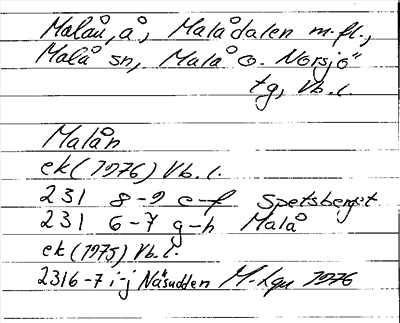 Malån, å, Malådalen m.fl.,
Malå sn, Malå o. Norsjö
tg, Vb. l.
Malån
ek (1976) Vb. l.
231 8-9 e-f Spetsberget
231 6-7 g-h Malå
ek (1975) Vb. l.
231 6-7 i-j Näsudden 1976